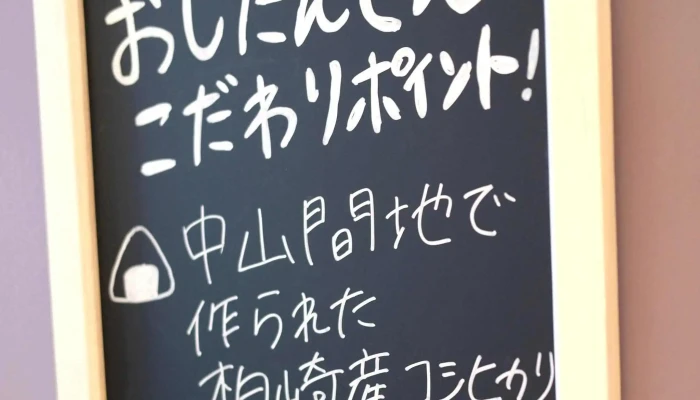 こだわりポイント!
中山間地で
作られた
柏崎産コシヒカリ